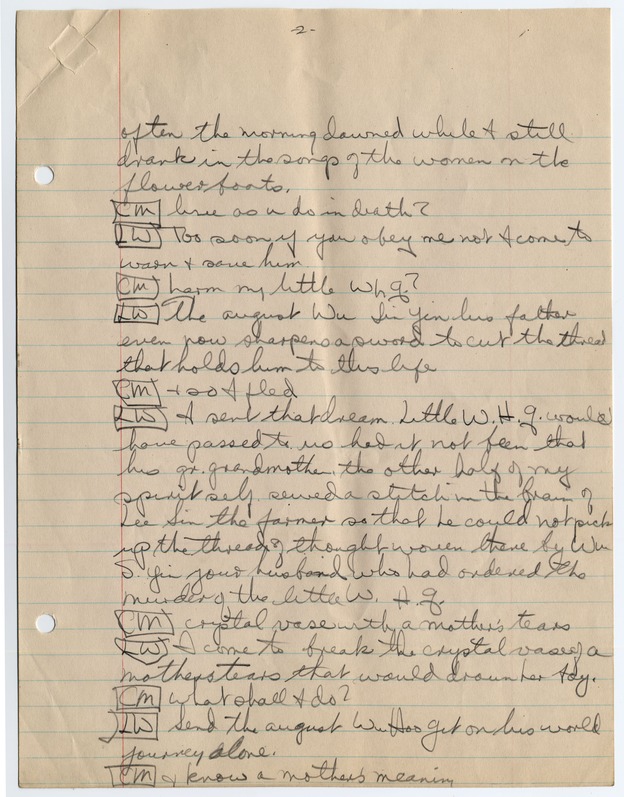 -2-
often the morning dawned while I still
drank in the songs of the women on the
flower boats.
CM live as u do in death?
LW Too soon if you obey me not I come to
warn + save him
CM harm my little W.h.g.?
LW The august Wu Sin Yin his father
even now sharpens a sword to cut the thread
that holds him to this life
CM + so I fled
LW I sent that dream. Little W. H. g. would
have passed to us had it not been that
his gr. grandmother, the other half of my
spirit self, sewed a stitch in the brain of
Lee Sin the farmer so that he could not pick
up the thread of thought woven there by Wu
S. Yin your husband who had ordered the
murder of the little W. H. g.
CM crystal vase with a mother's tears
LW I come to break the crystal vase of a
mothers tears that would drown her boy.
CM what shall I do?
LW send the august Wu Hoo Git on his world
journey alone.
CM I know a mother's meaning